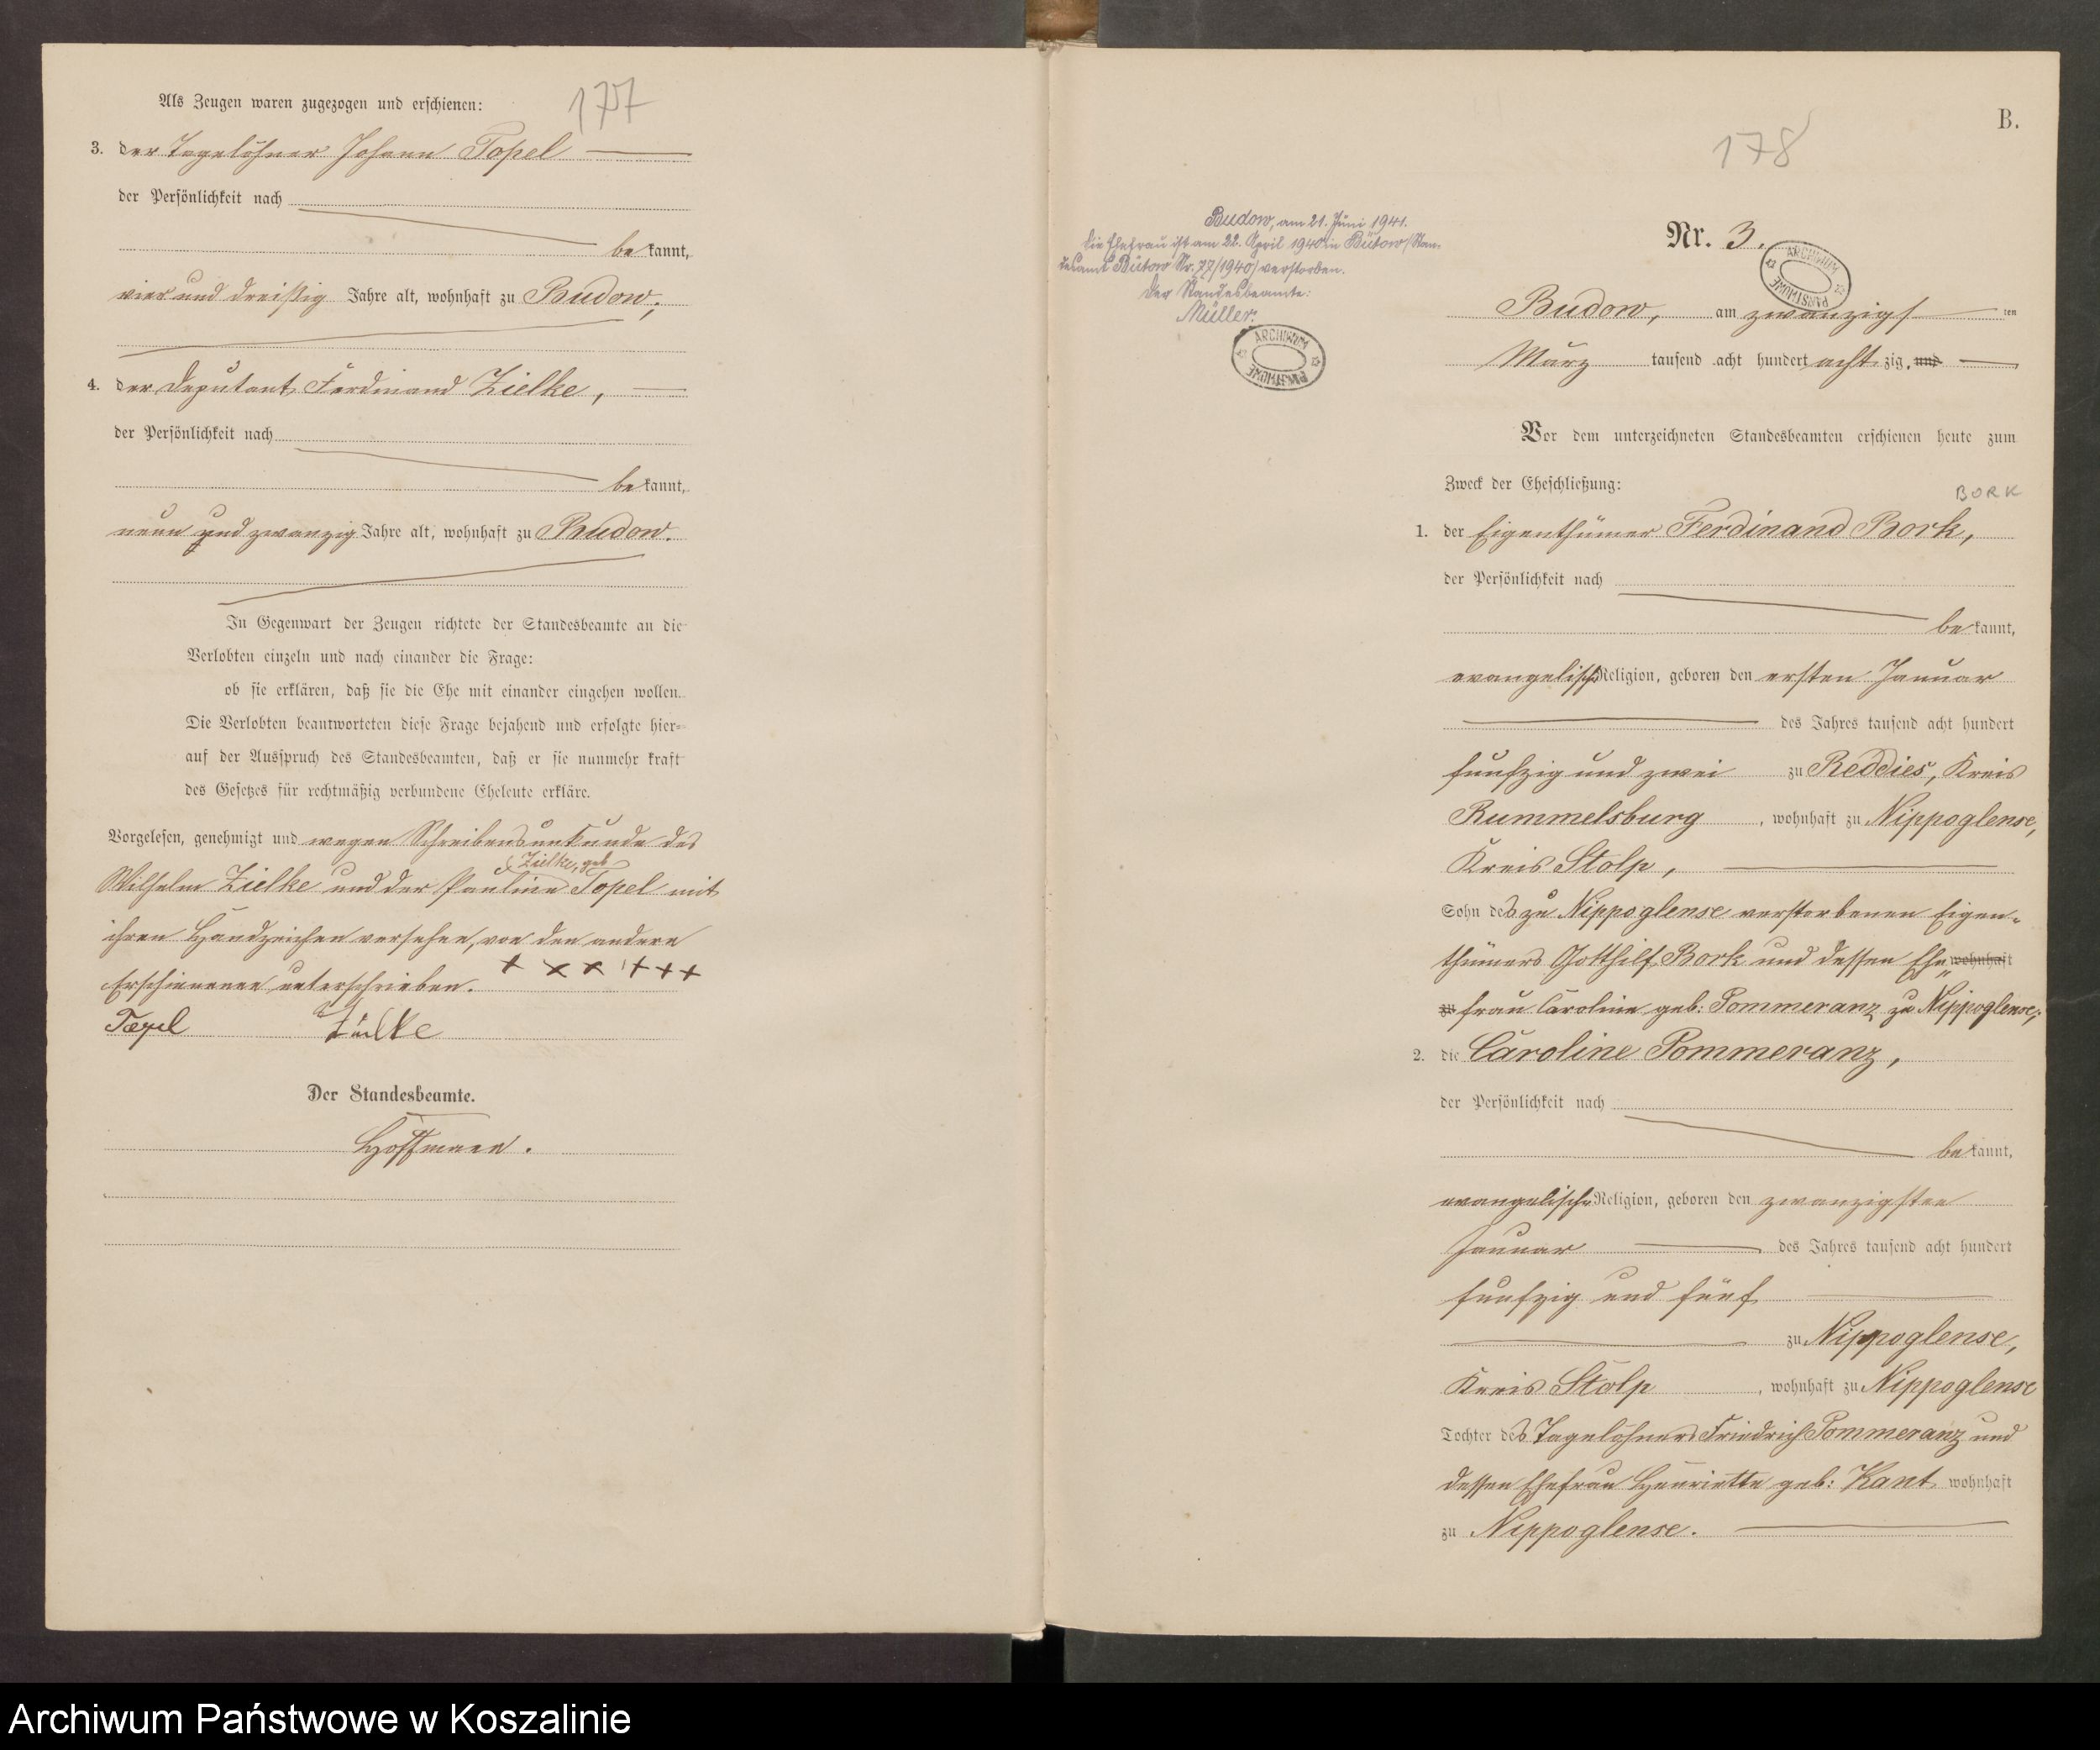 177
Als Zeugen waren zugezogen und erschienen:
3. der Tagelöhner Johann Topel
der Persönlichkeit nach
bekannt,
vier und dreißig Jahre alt, wohnhaft zu Budow;
4. der Deputant Ferdinand Zielke,
der Persönlichkeit nach
bekannt,
neun und zwanzig Jahre alt, wohnhaft zu Budow.
In Gegenwart der Zeugen richtete der Standesbeamte an die
Verlobten einzeln und nach einander die Frage:
ob sie erklären, daß sie die Ehe mit einander eingehen wollen.
Die Verlobten beantworteten diese Frage bejahend und erfolgte hier-
auf der Ausspruch des Standesbeamten, daß er sie nunmehr kraft
des Gesetzes für rechtmäßig verbundene Eheleute erkläre.
Vorgelesen, genehmigt und wegen Schreibensunkunde des
Zielke, geb
Wilhelm Zielke und der Pauline Topel mit
ihren Handzeichen versehen, von den andern
Erschienenen unterschrieben. + x x + + +
Topel Zielke
Der Standesbeamte.
Hoffmann.
B.
178
Budow, am 21. Juni 1941.
Die Ehefrau ist am 22. April 1940 in Bütow (Stan-
desamt Bütow Nr. 77/1940) verstorben.
Der Standesbeamte:
Müller.
ARCHIWUM
PAŃSTWOWE
Nr. 3.
ARCHIWUM
PAŃSTWOWE
Budow, am zwanzigsten
März tausend acht hundert achtzig und
Vor dem unterzeichneten Standesbeamten erschienen heute zum
Zweck der Eheschließung:
BORK
1. der Eigenthümer Ferdinand Bork,
der Persönlichkeit nach
bekannt,
evangelischer Religion, geboren den ersten Januar
des Jahres tausend acht hundert
funfzig und zwei zu Reddies, Kreis
Rummelsburg, wohnhaft zu Nippoglense,
Kreis Stolp,
Sohn des zu Nippoglense verstorbenen Eigen-
thümers Gotthilf Bork und dessen Ehe wohnhaft
zu frau Caroline geb: Pommeranz zu Nippoglense;
2. die Caroline Pommeranz,
der Persönlichkeit nach
bekannt,
evangelischer Religion, geboren den zwanzigsten
Januar des Jahres tausend acht hundert
funfzig und fünf
zu Nippoglense,
Kreis Stolp, wohnhaft zu Nippoglense
Tochter des Tagelöhners Friedrich Pommeranz und
dessen Ehefrau Henriette geb: Kant wohnhaft
zu Nippoglense.
Archiwum Państwowe w Koszalinie